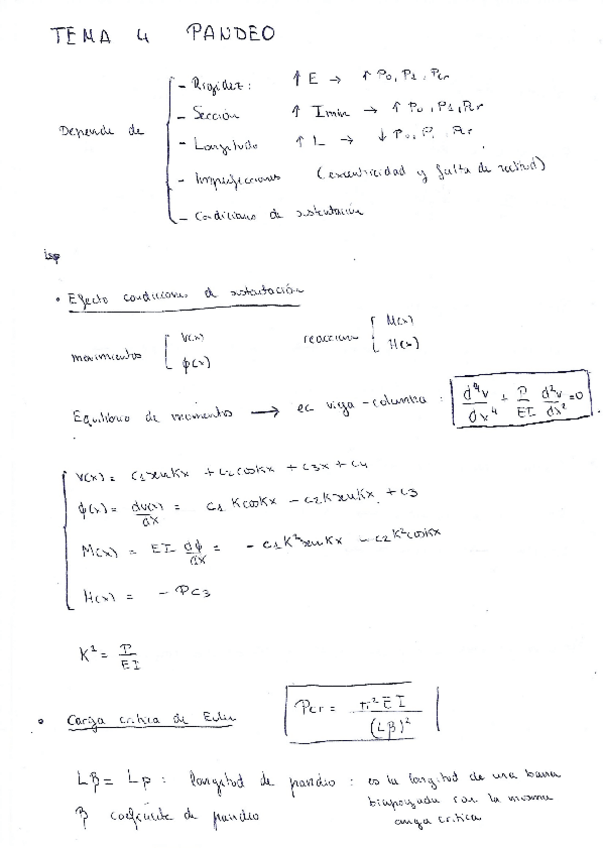 TEMA 4 PANDEO
Depende de
- Rigidez: ↑ E → ↑ P0, P1, Pcr
- Sección ↑ Imin → ↑ P0, P1, Pcr
- Longitud ↑ L → ↓ P0, P, Pcr
- Imperfecciones (excentricidad y falta de rectitud)
- Condiciones de sustentación
• Efecto condiciones de sustentación
movimientos { v(x) reacciones { M(x)
φ(x) H(x)
Equilibrio de momentos → ec viga-columna: d⁴v/dx⁴ + P/EI d²v/dx² = 0
v(x) = c1 senKx + c2 cosKx + c3x + c4
φ(x) = dv(x)/dx = c1 K cosKx - c2K senKx + c3
M(x) = EI dφ/dx = - c1K² senKx - c2K² cosKx
H(x) = - Pc3
K² = P/EI
• Carga crítica de Euler Pcr = π²EI/(Lβ)²
Lβ = Lp : longitud de pandeo : es la longitud de una barra
biapoyada con la misma
carga crítica
β coeficiente de pandeo